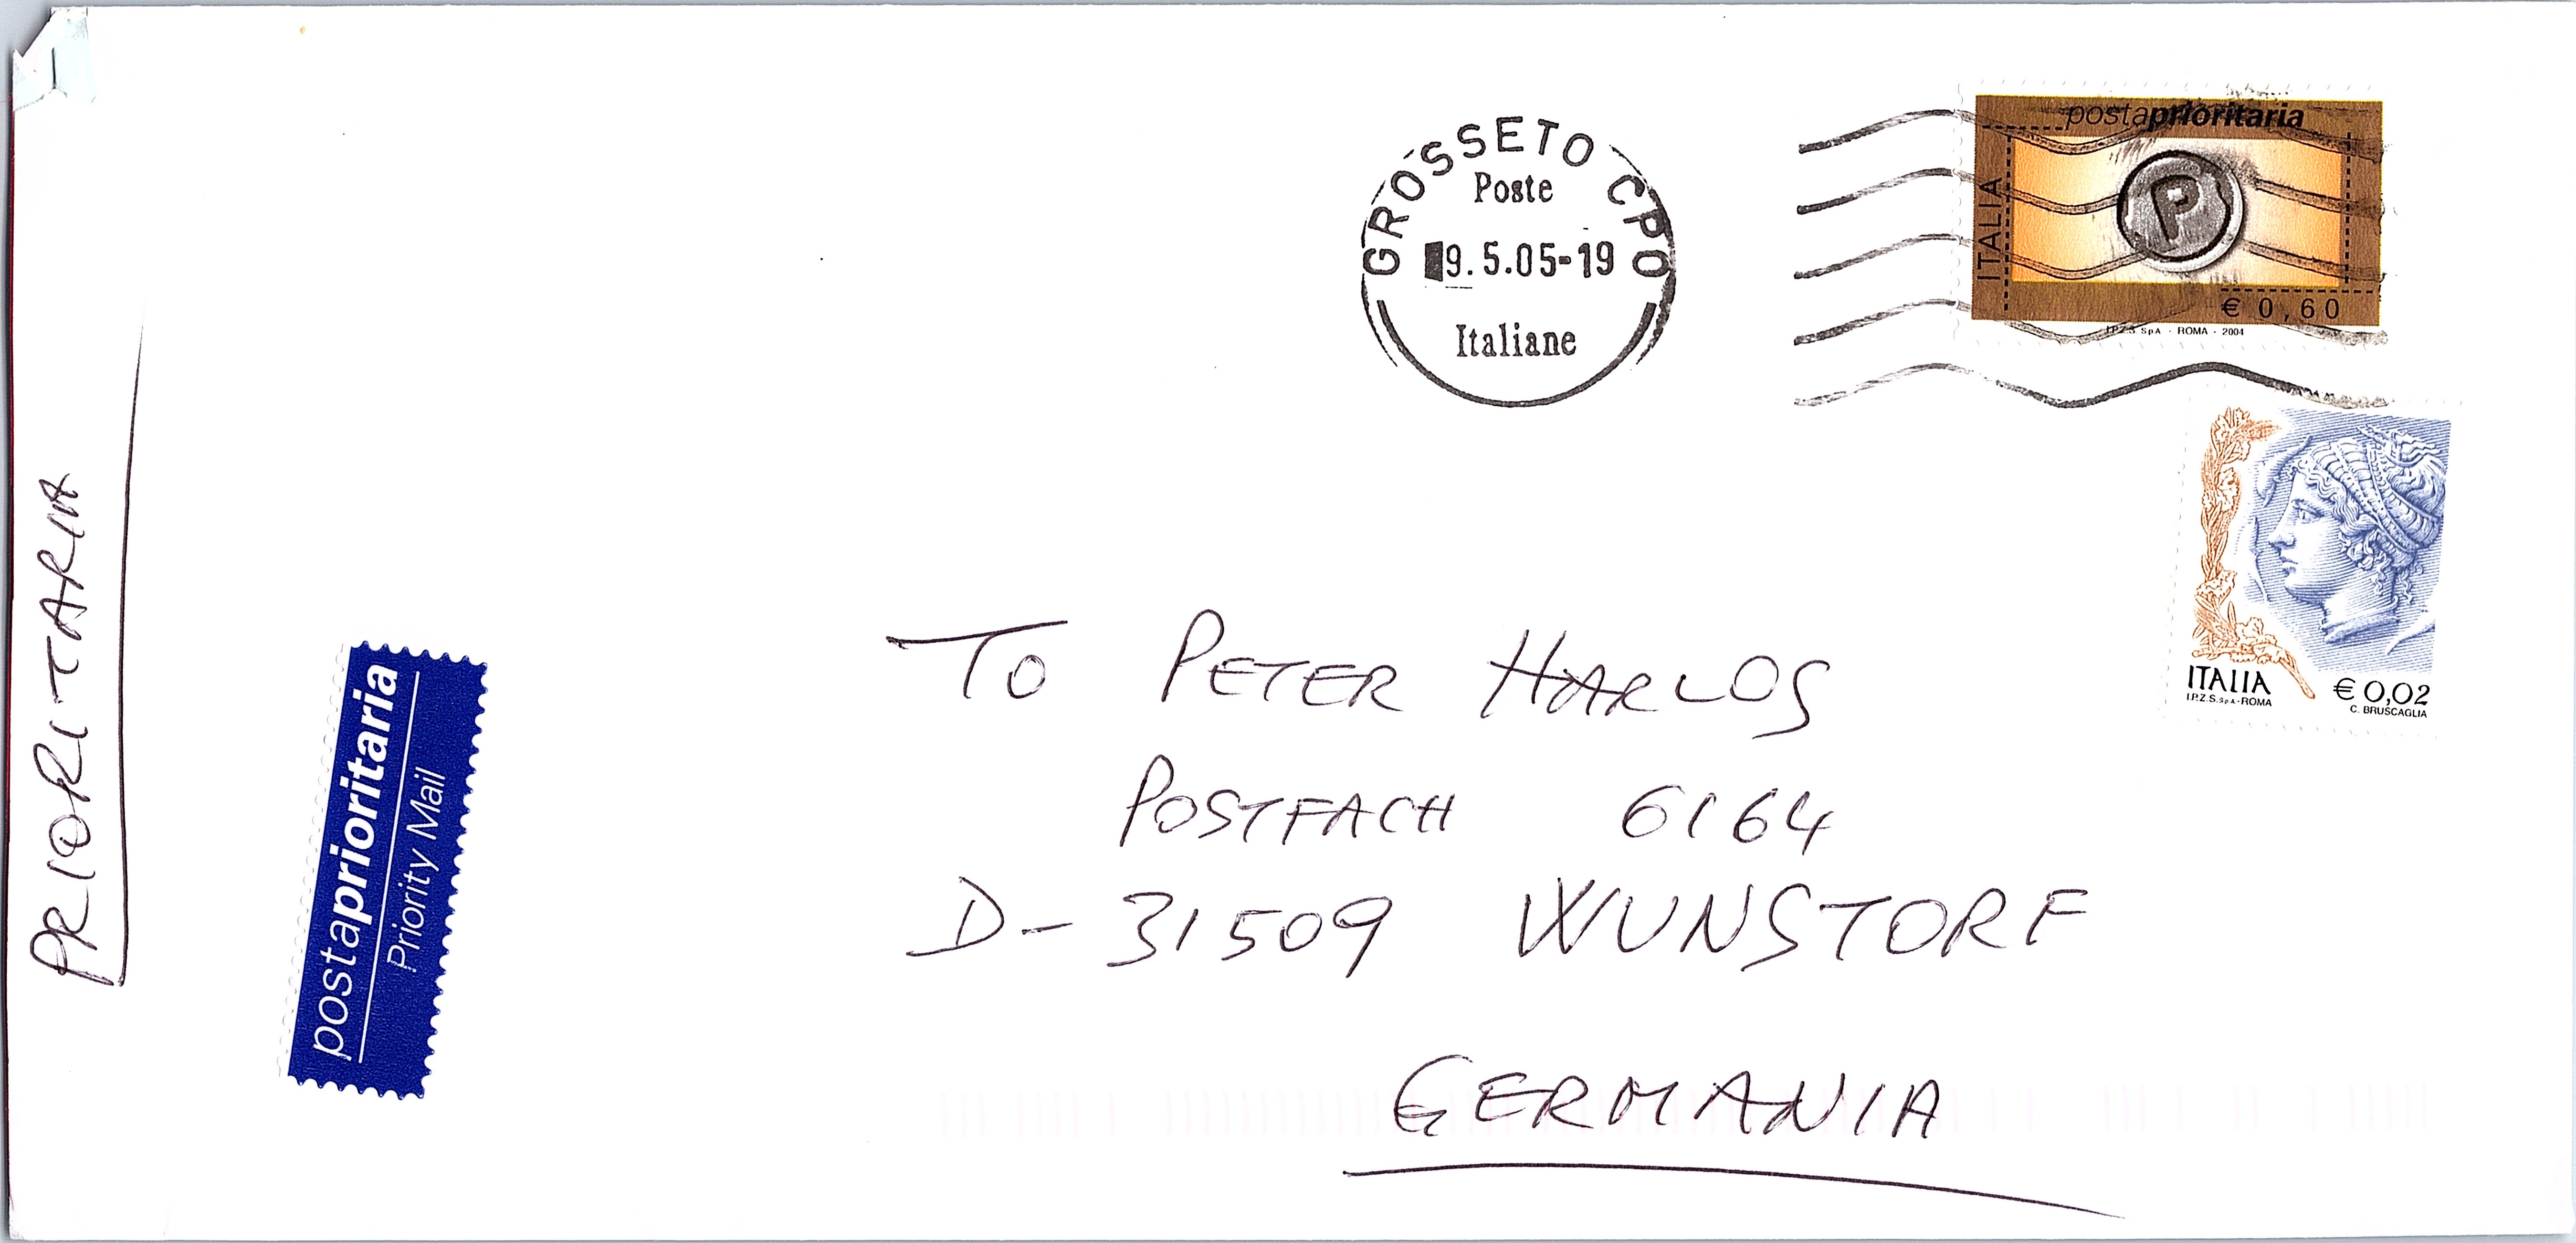 PRIORITARIA
postaprioritaria
Priority Mail
GROSSETO CPO
Poste
9.5.05-19
Italiane
postaprioritaria
ITALIA
P
€ 0,60
I.P.Z.S. SpA - ROMA - 2004
ITALIA
€ 0,02
I.P.Z.S. SpA - ROMA
C. BRUSCAGLIA
TO PETER HARLOS
POSTFACH 6164
D-31509 WUNSTORF
GERMANIA